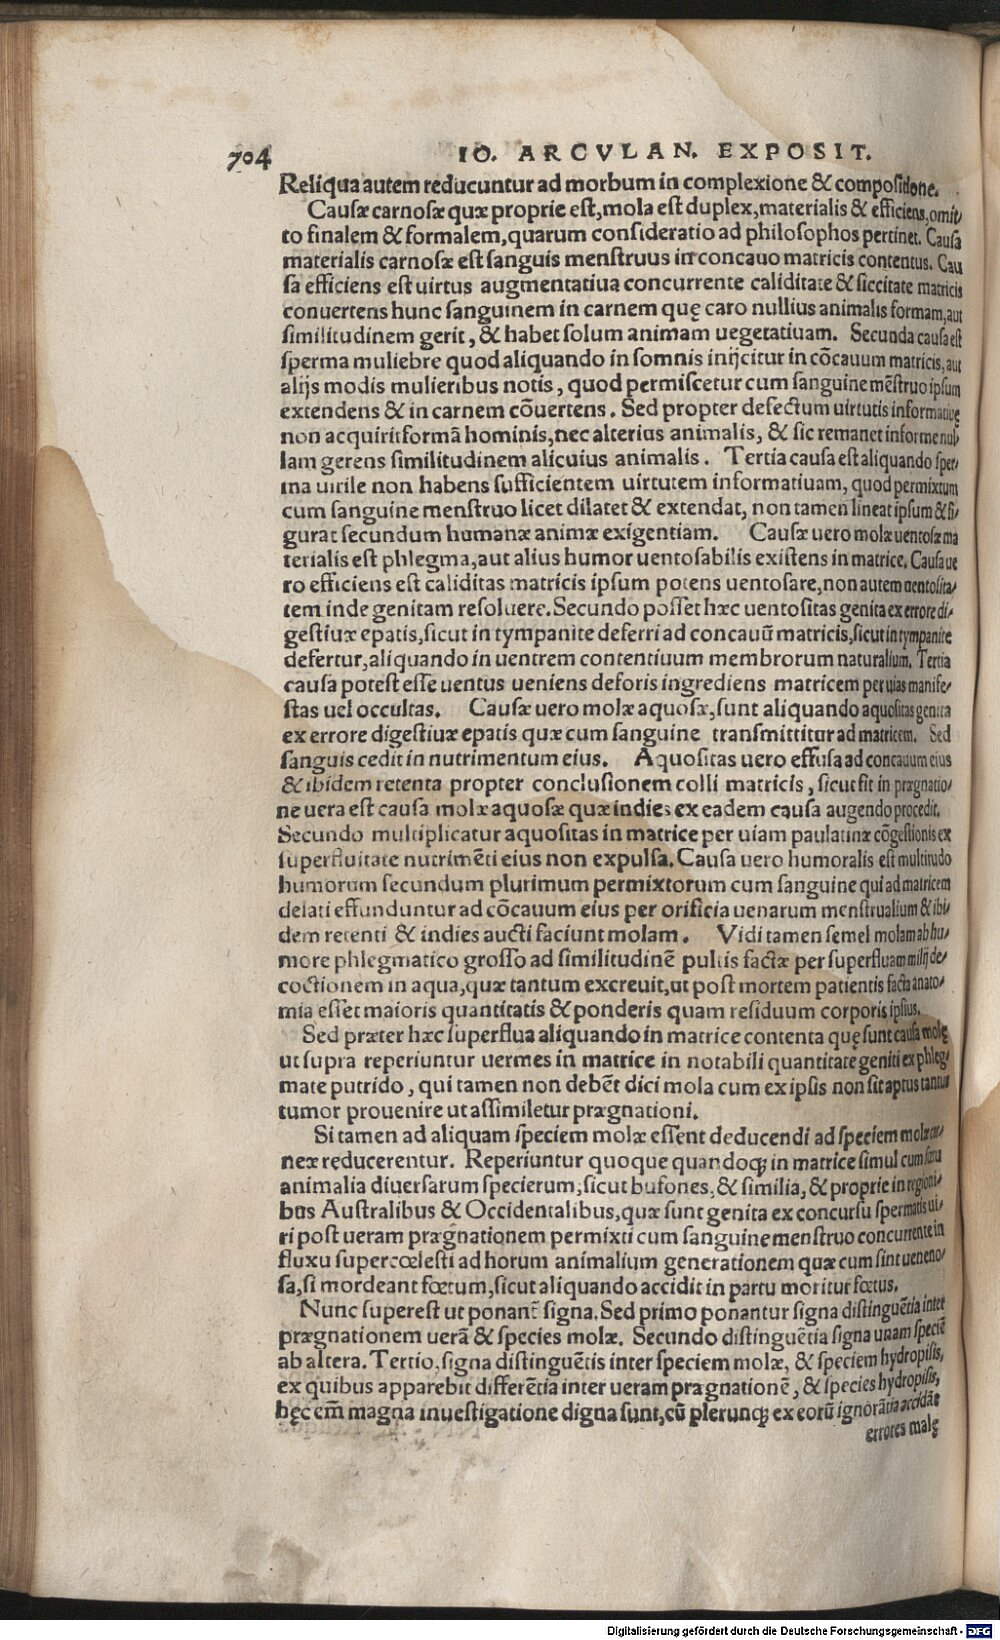 704 IO. ARCVLAN. EXPOSIT.
Reliqua autem reducuntur ad morbum in complexione & compositione.
Causæ carnosæ quæ proprie est, mola est duplex, materialis & efficiens, omit/
to finalem & formalem, quarum consideratio ad philosophos pertinet. Causa
materialis carnosæ est sanguis menstruus in concauo matricis contentus. Cau
sa efficiens est uirtus augmentatiua concurrente caliditate & siccitate matricis
conuertens hunc sanguinem in carnem quę caro nullius animalis formam, aut
similitudinem gerit, & habet solum animam uegetatiuam. Secunda causa est
sperma muliebre quod aliquando in somnis inijcitur in cōcauum matricis, aut
alijs modis mulieribus notis, quod permiscetur cum sanguine mēstruo ipsum
extendens & in carnem cōuertens. Sed propter defectum uirtutis informatiuę
non acquirit formā hominis, nec alterius animalis, & sic remanet informe nul/
lam gerens similitudinem alicuius animalis. Tertia causa est aliquando sper/
ma uirile non habens sufficientem uirtutem informatiuam, quod permixtum
cum sanguine menstruo licet dilatet & extendat, non tamen lineat ipsum & fi/
gurat secundum humanæ animæ exigentiam. Causæ uero molæ uentosæ ma
terialis est phlegma, aut alius humor uentosabilis existens in matrice. Causa ue
ro efficiens est caliditas matricis ipsum potens uentosare, non autem uentosita/
tem inde genitam resoluere. Secundo posset hæc uentositas genita ex errore di/
gestiuæ epatis, sicut in tympanite deferri ad concauū matricis, sicut in tympanite
defertur, aliquando in uentrem contentiuum membrorum naturalium. Tertia
causa potest esse uentus ueniens deforis ingrediens matricem per uias manife/
stas uel occultas. Causæ uero molæ aquosæ, sunt aliquando aquositas genita
ex errore digestiuæ epatis quæ cum sanguine transmittitur ad matricem. Sed
sanguis cedit in nutrimentum eius. Aquositas uero effusa ad concauum eius
& ibidem retenta propter conclusionem colli matricis, sicut fit in prægnatio/
ne uera est causa molæ aquosæ quæ indies ex eadem causa augendo procedit.
Secundo multiplicatur aquositas in matrice per uiam paulatinæ cōgestionis ex
superfluitate nutrimēti eius non expulsa. Causa uero humoralis est multitudo
humorum secundum plurimum permixtorum cum sanguine qui ad matricem
delati effunduntur ad cōcauum eius per orificia uenarum menstrualium & ibi/
dem retenti & indies aucti faciunt molam. Vidi tamen semel molam ab hu/
more phlegmatico grosso ad similitudinē pultis factæ per superfluam milij de/
coctionem in aqua, quæ tantum excreuit, ut post mortem patientis facta anato/
mia esset maioris quantitatis & ponderis quam residuum corporis ipsius.
Sed præter hæc superflua aliquando in matrice contenta quę sunt causa molę
ut supra reperiuntur uermes in matrice in notabili quantitate geniti ex phleg/
mate putrido, qui tamen non debēt dici mola cum ex ipsis non sit aptus tantus
tumor prouenire ut assimiletur prægnationi.
Si tamen ad aliquam speciem molæ essent deducendi ad speciem molæ car/
neæ reducerentur. Reperiuntur quoque quandoq; in matrice simul cum fœtu
animalia diuersarum specierum, sicut bufones, & similia, & proprie in regioni/
bus Australibus & Occidentalibus, quæ sunt genita ex concursu spermatis ui/
ri post ueram prægnationem permixti cum sanguine menstruo concurrente in
fluxu supercœlesti ad horum animalium generationem quæ cum sint ueneno/
sa, si mordeant fœtum, sicut aliquando accidit in partu moritur fœtus.
Nunc superest ut ponant̄ signa. Sed primo ponantur signa distinguētia inter
prægnationem uerā & species molæ. Secundo distinguētia signa unam speciē
ab altera. Tertio, signa distinguētis inter speciem molæ, & speciem hydropisis,
ex quibus apparebit differētia inter ueram prægnationē, & species hydropisis,
hęc em̄ magna inuestigatione digna sunt, cū plerunq; ex eorū ignorātia accidāt
errores malę
Digitalisierung gefördert durch die Deutsche Forschungsgemeinschaft - DFG